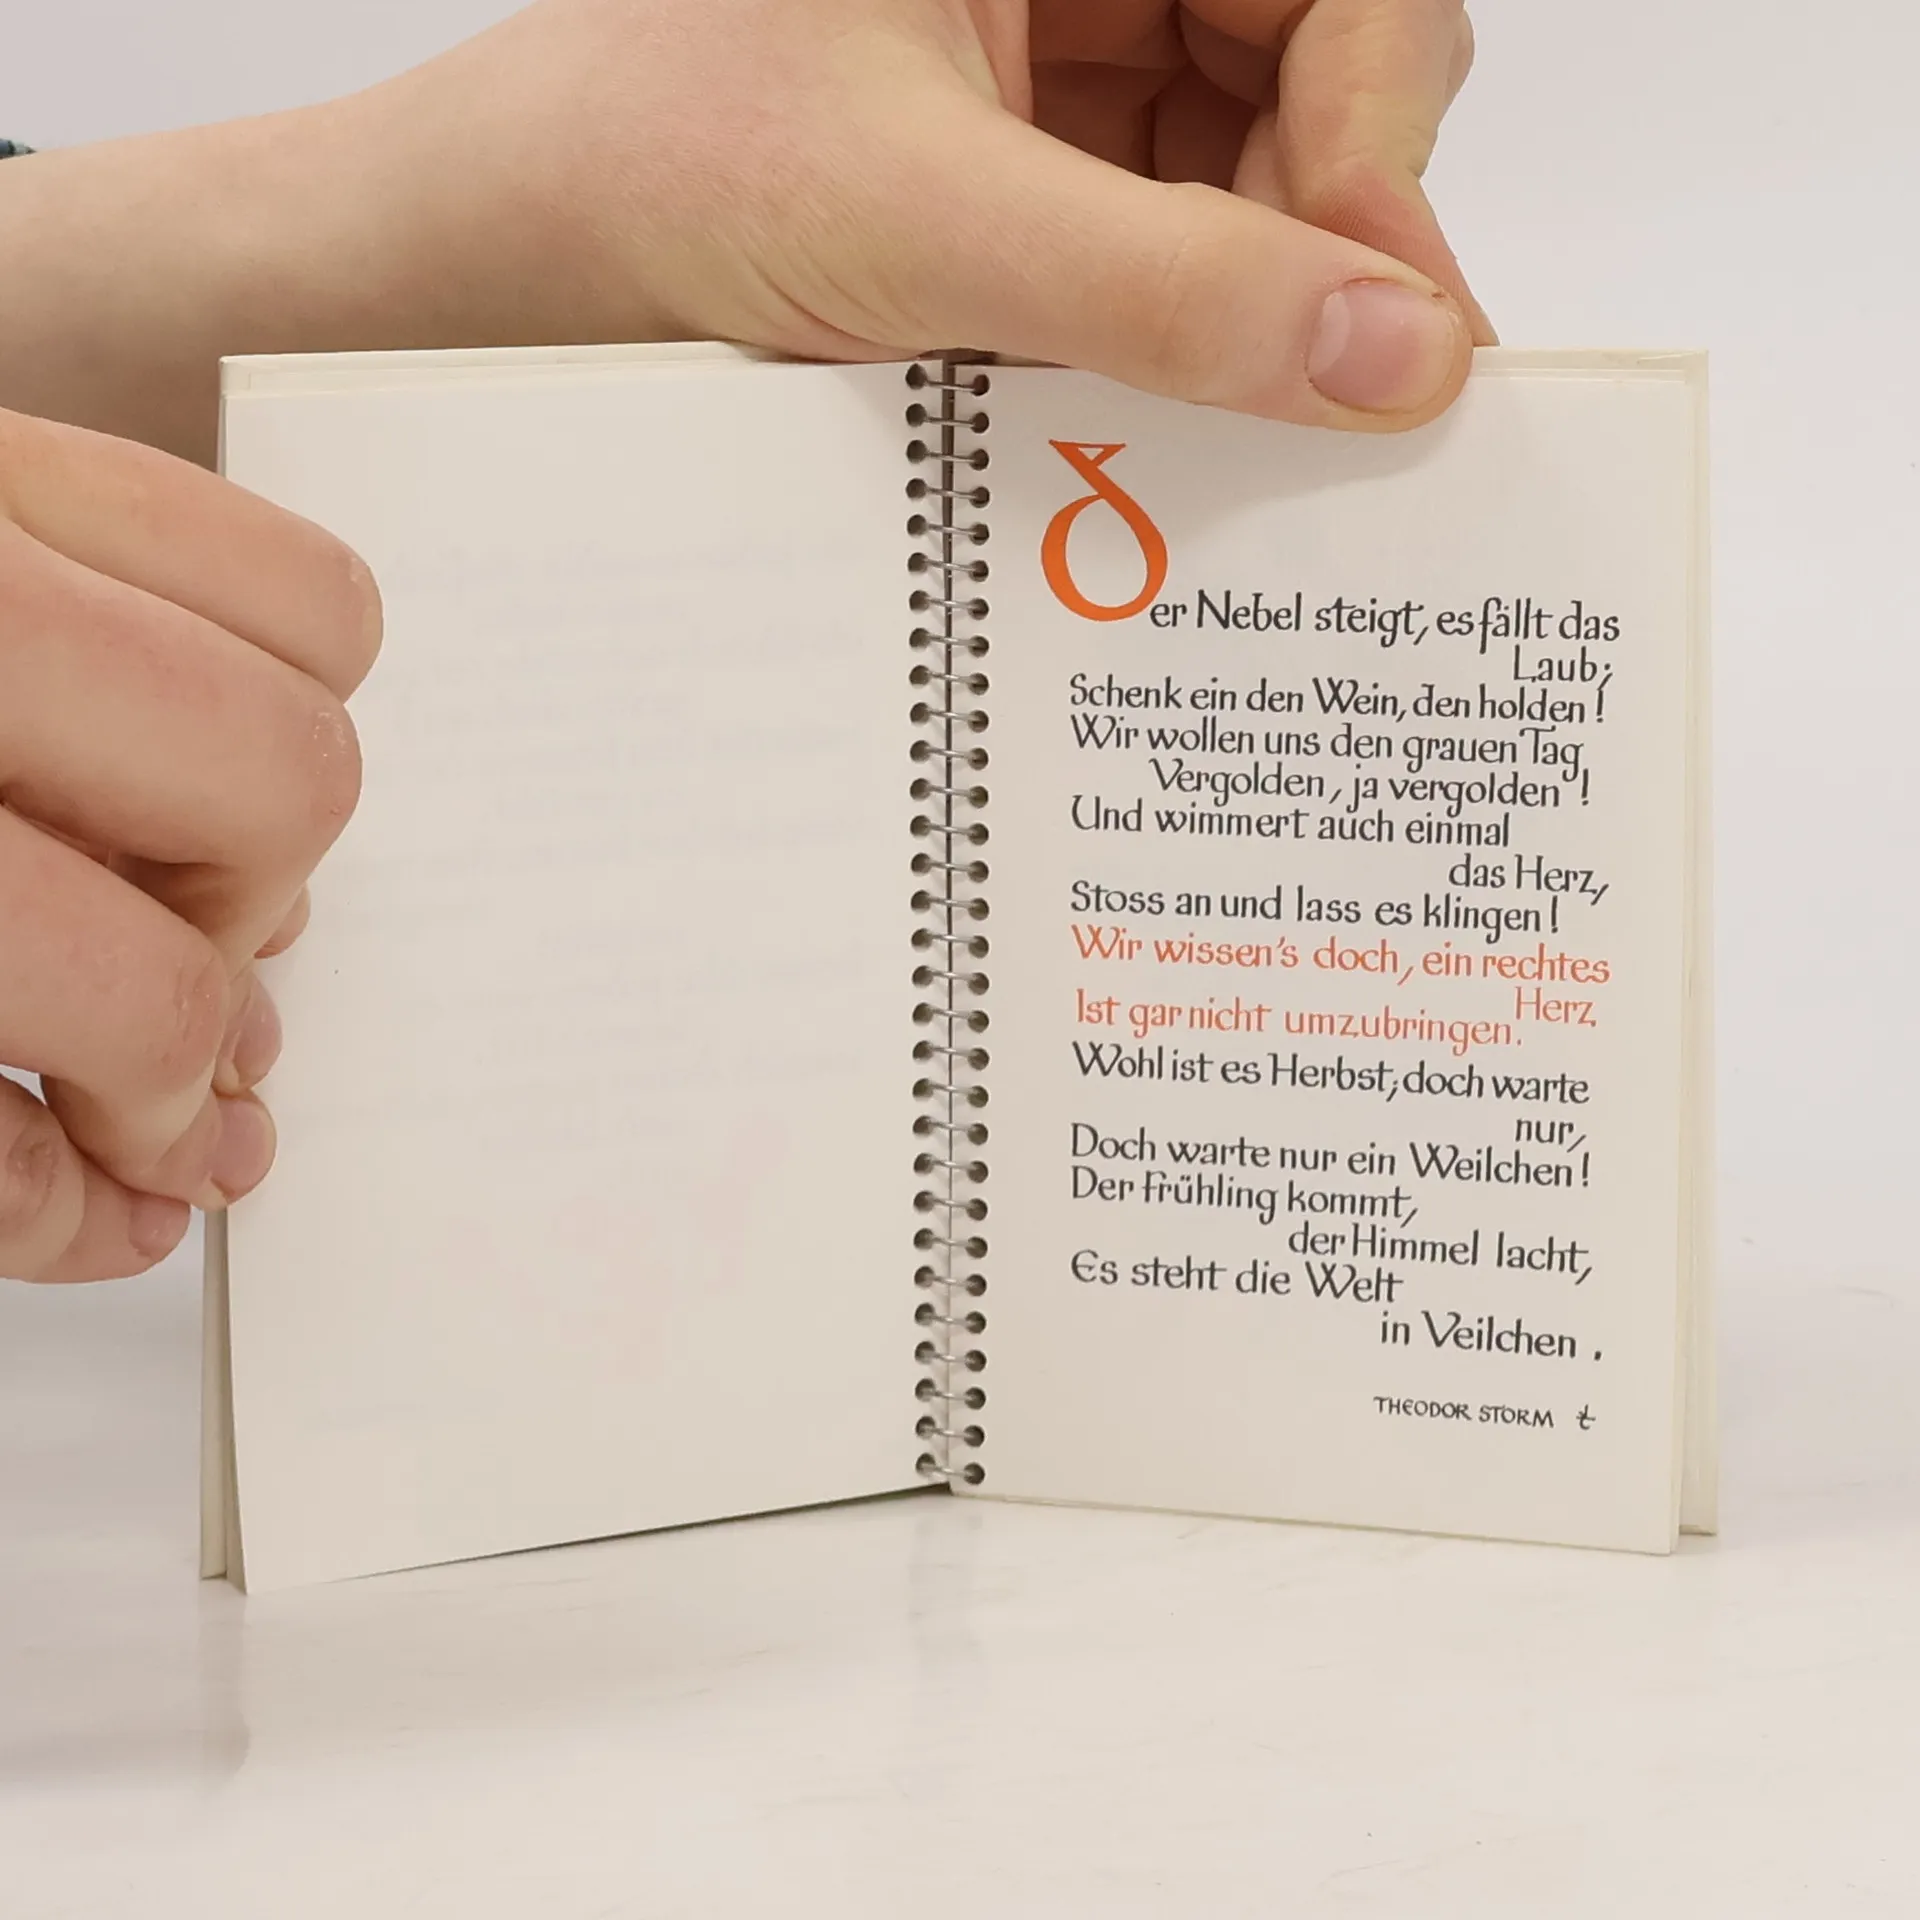 Der Nebel steigt, es fällt das
Laub;
Schenk ein den Wein, den holden!
Wir wollen uns den grauen Tag
Vergolden, ja vergolden!
Und wimmert auch einmal
das Herz,
Stoss an und lass es klingen!
Wir wissen's doch, ein rechtes
Herz
Ist gar nicht umzubringen.
Wohl ist es Herbst; doch warte
nur,
Doch warte nur ein Weilchen!
Der Frühling kommt,
der Himmel lacht,
Es steht die Welt
in Veilchen.
THEODOR STORM